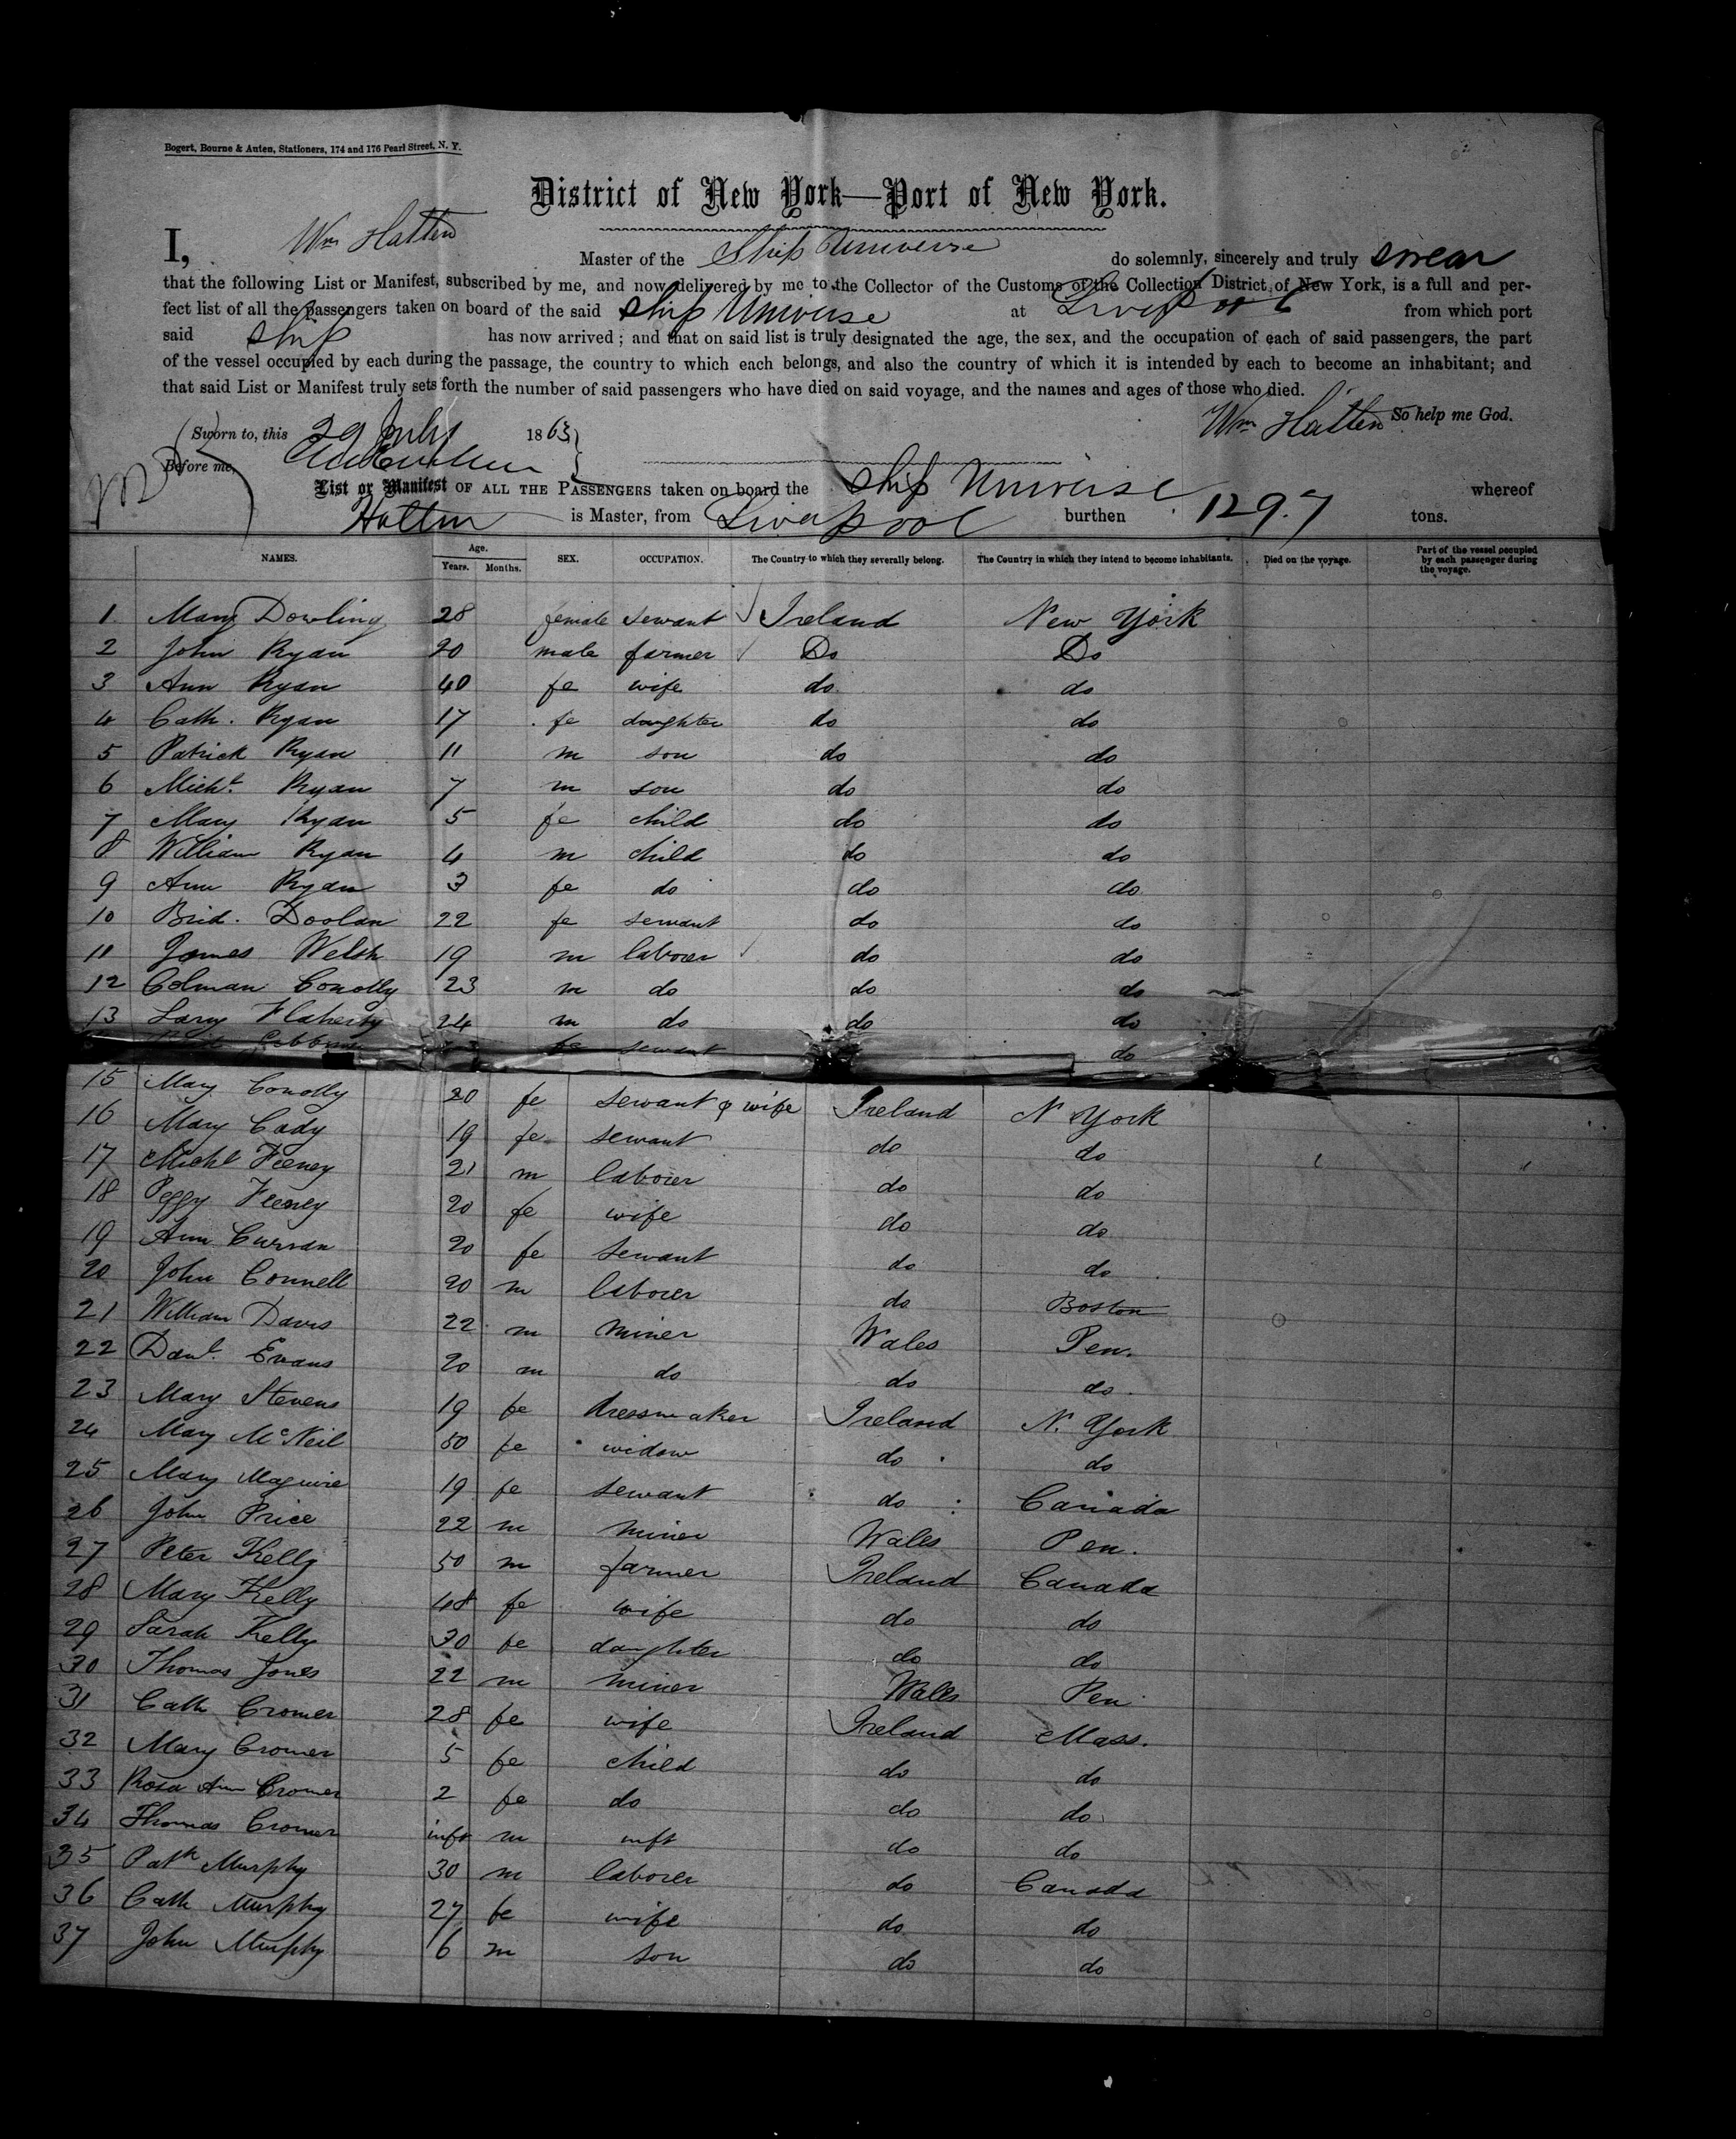 Bogert, Bourne & Anten, Stationers, 174 and 176 Pearl Street, N. Y.
District of New York—Port of New York.
I, Wm Hatten Master of the Ship Universe do solemnly, sincerely and truly swear
that the following List or Manifest, subscribed by me, and now delivered by me to the Collector of the Customs of the Collection District of New York, is a full and per-
fect list of all the passengers taken on board of the said Ship Universe at Liverpool from which port
said Ship has now arrived; and that on said list is truly designated the age, the sex, and the occupation of each of said passengers, the part
of the vessel occupied by each during the passage, the country to which each belongs, and also the country of which it is intended by each to become an inhabitant; and
that said List or Manifest truly sets forth the number of said passengers who have died on said voyage, and the names and ages of those who died.
Wm Hatten So help me God.
Sworn to, this 29 July 1863
Before me,
List or Manifest OF ALL THE PASSENGERS taken on board the Ship Universe whereof
Hatten is Master, from Liverpool burthen 1297 tons.
NAMES. Age. Years. Months. SEX. OCCUPATION. The Country to which they severally belong. The Country in which they intend to become inhabitants. Died on the voyage. Part of the vessel occupied by each passenger during the voyage.
1 Mary Dowling 28 female servant Ireland New York
2 John Ryan 20 male farmer Do Do
3 Ann Ryan 40 fe wife do do
4 Cath. Ryan 17 fe daughter do do
5 Patrick Ryan 11 m son do do
6 Michl. Ryan 7 m son do do
7 Mary Ryan 5 fe child do do
8 William Ryan 4 m child do do
9 Ann Ryan 3 fe do do do
10 Brid. Doolan 22 fe servant do do
11 James Welsh 19 m laborer do do
12 Colman Conolly 23 m do do do
13 Lary Flaherty 24 m do do do
fe servant do
15 Mary Conolly 20 fe servant & wife Ireland N York
16 Mary Cady 19 fe servant do do
17 Michl Feeney 21 m laborer do do
18 Peggy Feeney 20 fe wife do do
19 Ann Curran 20 fe servant do do
20 John Connell 20 m laborer do Boston
21 William Davis 22 m miner Wales Pen.
22 Danl. Evans 20 m do do do
23 Mary Stevens 19 fe dressmaker Ireland N. York
24 Mary McNeil 50 fe widow do do
25 Mary Maguire 19 fe servant do Canada
26 John Price 22 m miner Wales Pen.
27 Peter Kelly 50 m farmer Ireland Canada
28 Mary Kelly 48 fe wife do do
29 Sarah Kelly 30 fe daughter do do
30 Thomas Jones 22 m miner Wales Pen
31 Cath Cromer 28 fe wife Ireland Mass.
32 Mary Cromer 5 fe child do do
33 Rosa Ann Cromer 2 fe do do do
34 Thomas Cromer inft m inft do do
35 Patk Murphy 30 m laborer do Canada
36 Cath Murphy 27 fe wife do do
37 John Murphy 6 m son do do